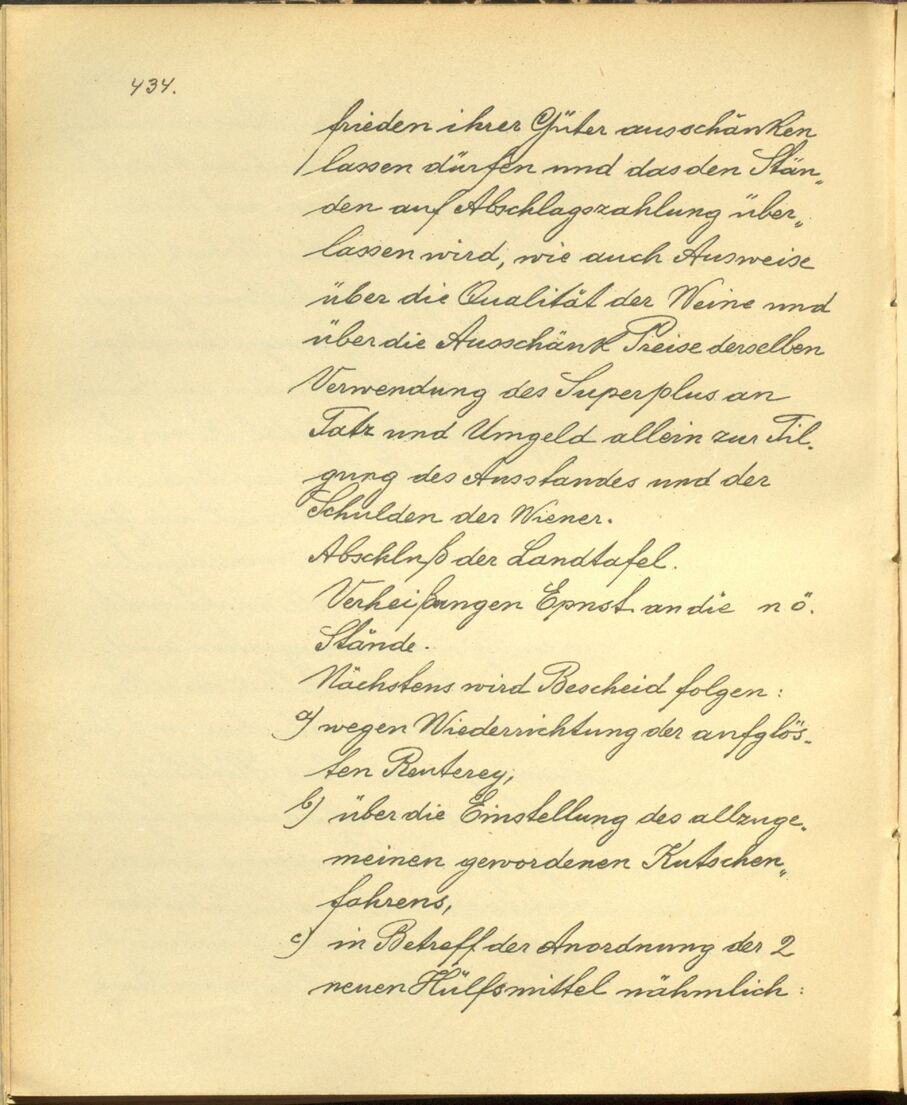 434.
frieden ihrer Güter ausschänken
lassen dürfen und das den Stän„
den auf Abschlagszahlung über„
lassen wird, wie auch Ausweise
über die Qualität der Weine und
über die Ausschänk Preise derselben
Verwendung des Superplus an
Tatz und Umgeld allein zur Til„
gung des Ausstandes und der
Schulden der Wiener.
Abschluß der Landtafel.
Verheißungen Ernst an die n ö.
Stände.
Nächstens wird Bescheid folgen:
a) wegen Wiederrichtung der aufglös„
ten Reuterey,
b) über die Einstellung des allzuge„
meinen gewordenen Kutschen„
fahrens,
c) in Betreff der Anordnung der 2
neuen Hülfsmittel nähmlich: